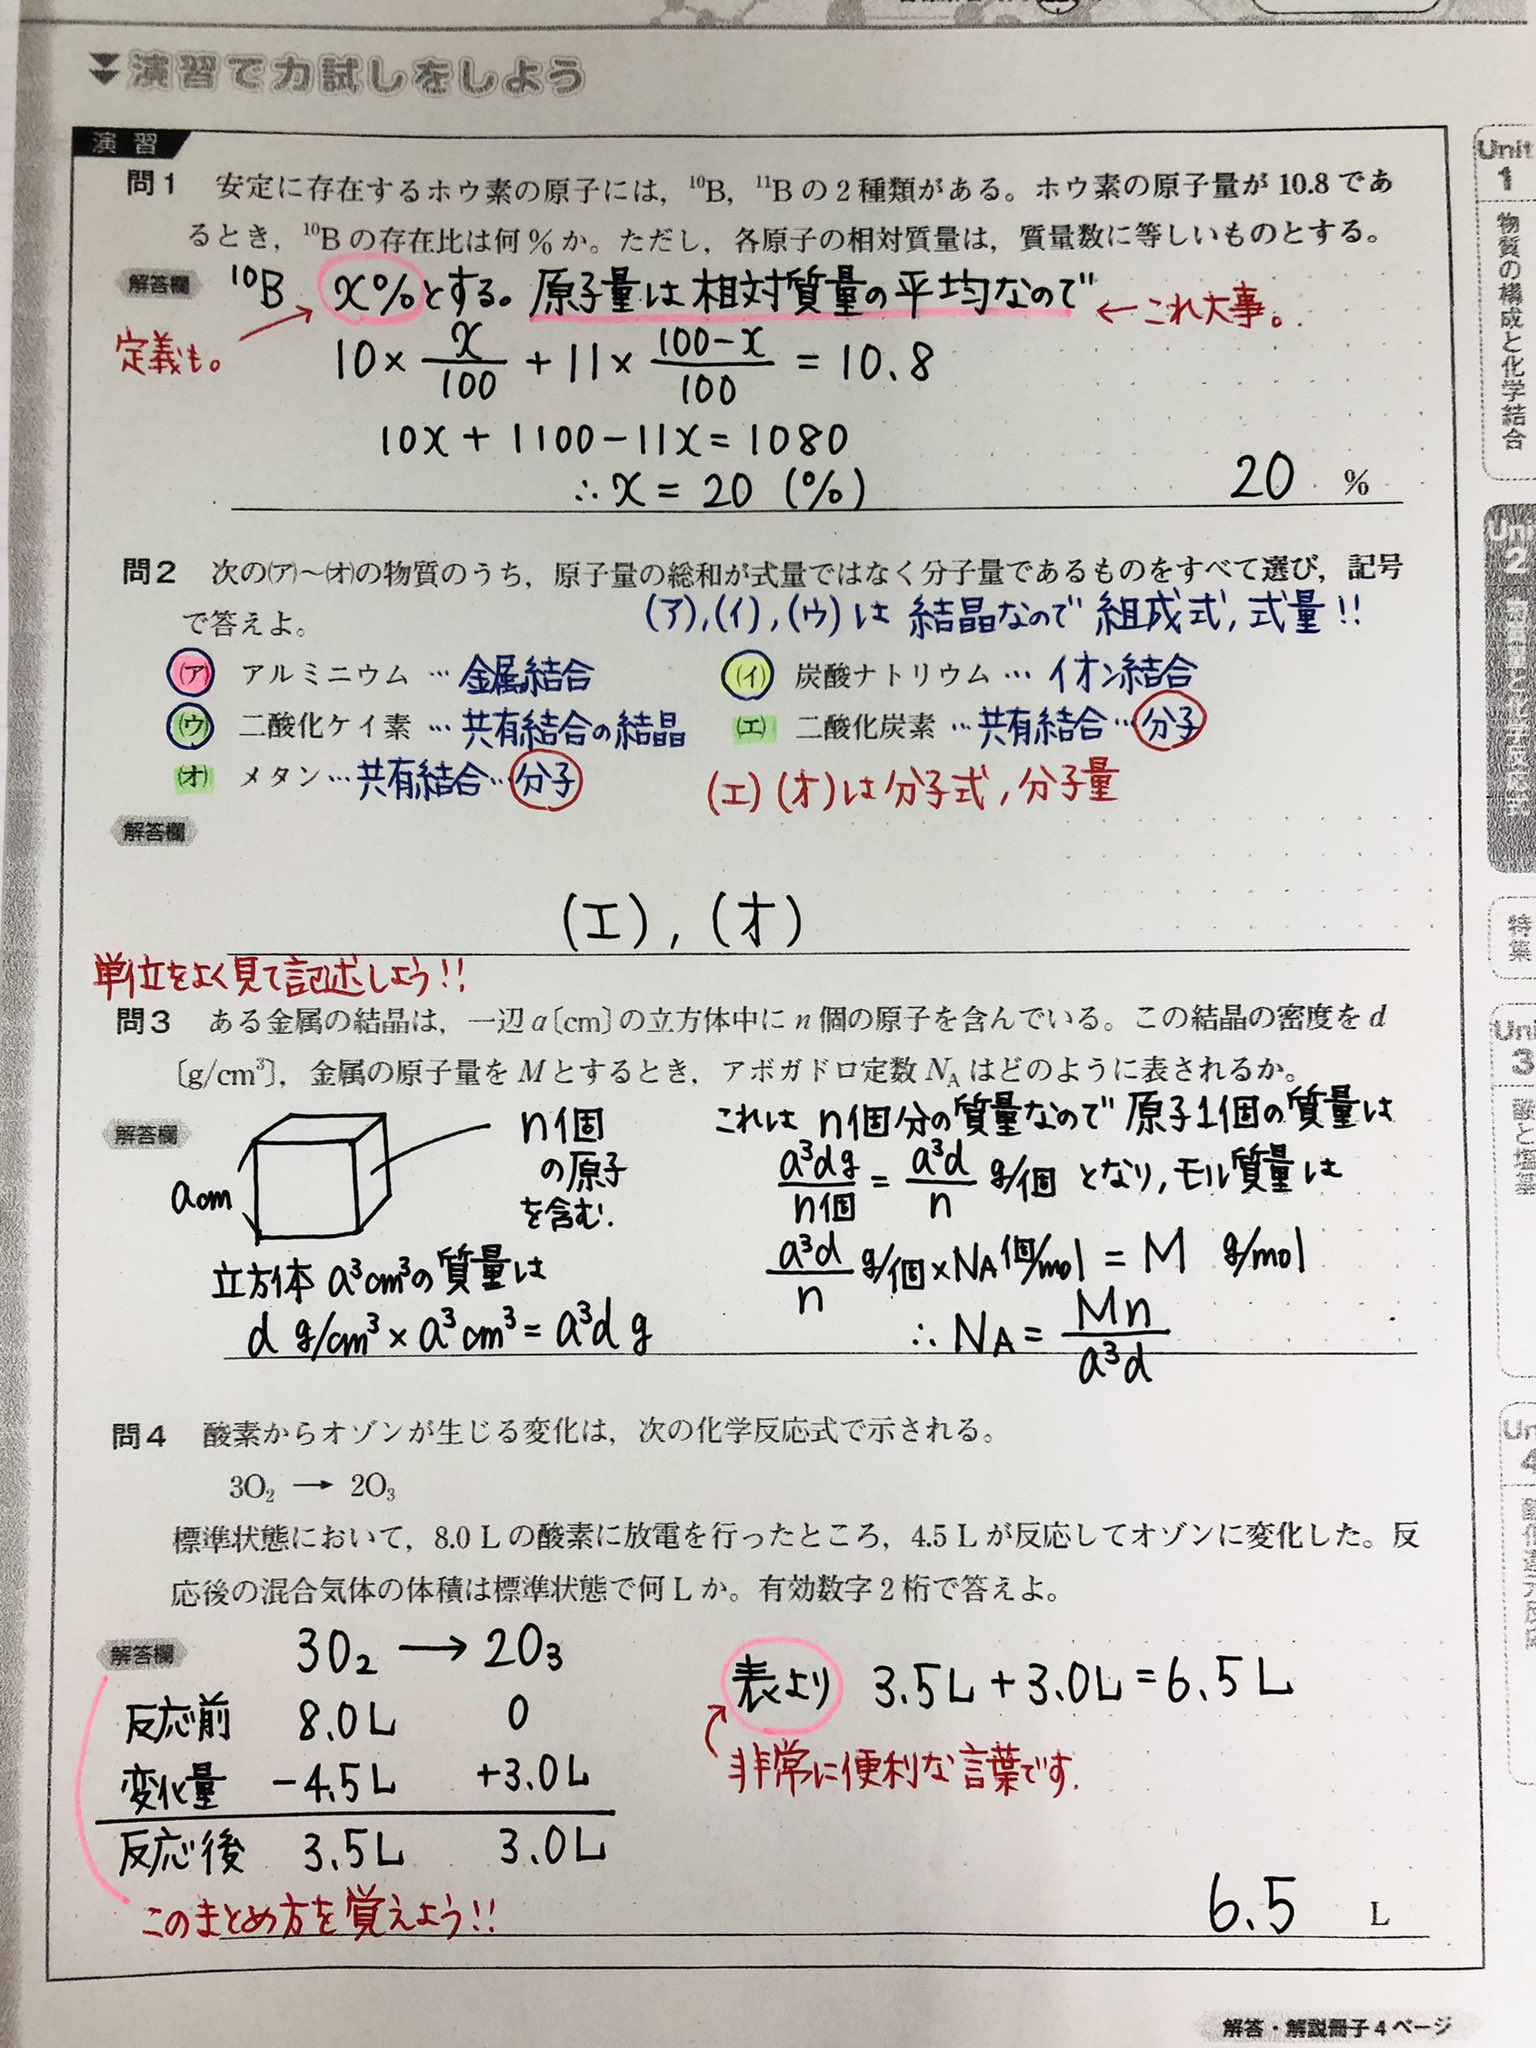 演習で力試しをしよう
演習
問1 安定に存在するホウ素の原子には，¹⁰B，¹¹Bの2種類がある。ホウ素の原子量が10.8であ
るとき，¹⁰Bの存在比は何％か。ただし，各原子の相対質量は，質量数に等しいものとする。
解答欄 ¹⁰B x%とする。原子量は相対質量の平均なので ←これ大事。
定義も。
10× x/100 + 11× (100-x)/100 = 10.8
10x + 1100 - 11x = 1080
∴ x = 20 (%)
20 %
問2 次の(ア)～(オ)の物質のうち，原子量の総和が式量ではなく分子量であるものをすべて選び，記号
で答えよ。
(ア),(イ),(ウ)は 結晶なので 組成式, 式量!!
(ア) アルミニウム … 金属結合
(イ) 炭酸ナトリウム … イオン結合
(ウ) 二酸化ケイ素 … 共有結合の結晶
(エ) 二酸化炭素 … 共有結合…分子
(オ) メタン…共有結合…分子
(エ)(オ)は分子式, 分子量
解答欄
(エ), (オ)
単位をよく見て記述しよう!!
問3 ある金属の結晶は，一辺a〔cm〕の立方体中にn個の原子を含んでいる。この結晶の密度をd
〔g/cm³〕，金属の原子量をMとするとき，アボガドロ定数N_Aはどのように表されるか。
解答欄
acm
n個
の原子
を含む.
立方体 a³cm³の質量は
d g/cm³ × a³cm³ = a³d g
これは n個分の質量なので 原子1個の質量は
a³dg/n個 = a³d/n g/個 となり, モル質量は
a³d/n g/個 × NA 個/mol = M g/mol
∴ NA = Mn/a³d
問4 酸素からオゾンが生じる変化は，次の化学反応式で示される。
3O₂ → 2O₃
標準状態において，8.0 Lの酸素に放電を行ったところ，4.5 Lが反応してオゾンに変化した。反
応後の混合気体の体積は標準状態で何Lか。有効数字2桁で答えよ。
解答欄
3O₂ → 2O₃
反応前 8.0L 0
変化量 -4.5L +3.0L
反応後 3.5L 3.0L
このまとめ方を覚えよう!!
表より 3.5L + 3.0L = 6.5L
非常に便利な言葉です.
6.5 L
解答・解説冊子4ページ
Unit
1
物質の構成と化学結合
Uni
2
特集
Uni
3
酸と塩基
Un
4